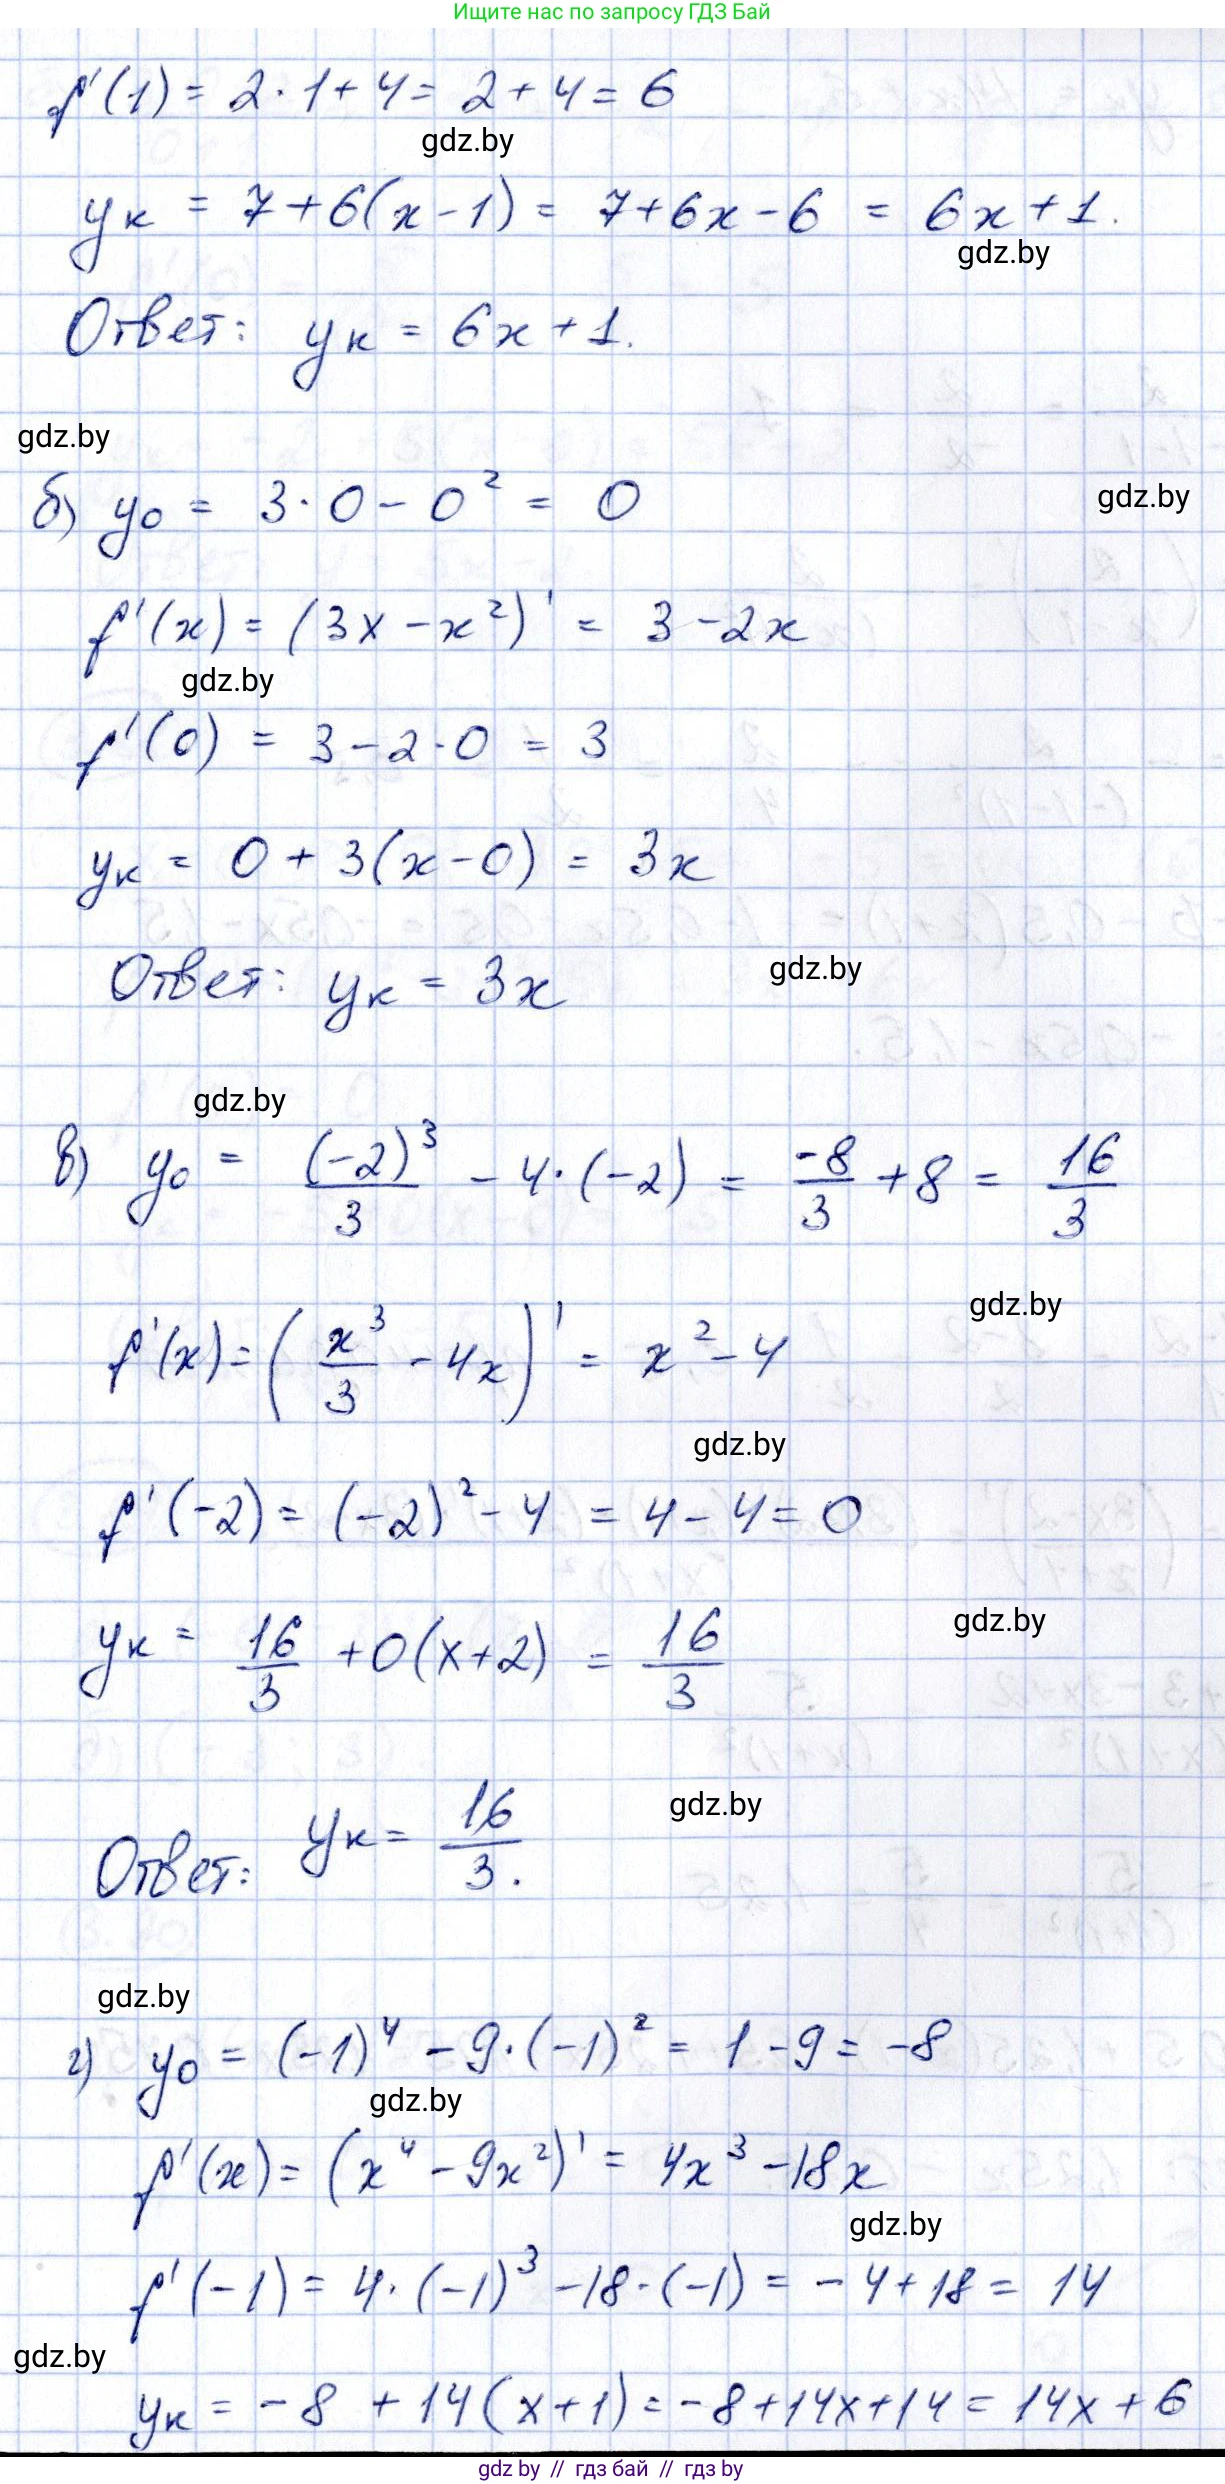 Ищите нас по запросу ГДЗ Бай
f'(1) = 2·1+4 = 2+4 = 6
gdz.by
yк = 7+6(x-1) = 7+6x-6 = 6x+1.
gdz.by
Ответ: yк = 6x+1.
gdz.by
gdz.by
б) y0 = 3·0 - 0² = 0
f'(x) = (3x - x²)' = 3-2x
gdz.by
f'(0) = 3-2·0 = 3
yк = 0 + 3(x-0) = 3x
Ответ: yк = 3x
gdz.by
gdz.by
в) y0 = (-2)³/3 - 4·(-2) = -8/3 + 8 = 16/3
gdz.by
f'(x) = (x³/3 - 4x)' = x² - 4
gdz.by
f'(-2) = (-2)² - 4 = 4 - 4 = 0
yк = 16/3 + 0(x+2) = 16/3
gdz.by
Ответ: yк = 16/3.
gdz.by
gdz.by
г) y0 = (-1)⁴ - 9·(-1)² = 1 - 9 = -8
gdz.by
f'(x) = (x⁴ - 9x²)' = 4x³ - 18x
gdz.by
f'(-1) = 4·(-1)³ - 18·(-1) = -4+18 = 14
gdz.by
yк = -8 + 14(x+1) = -8+14x+14 = 14x+6
gdz by // гдз бай // гдз by